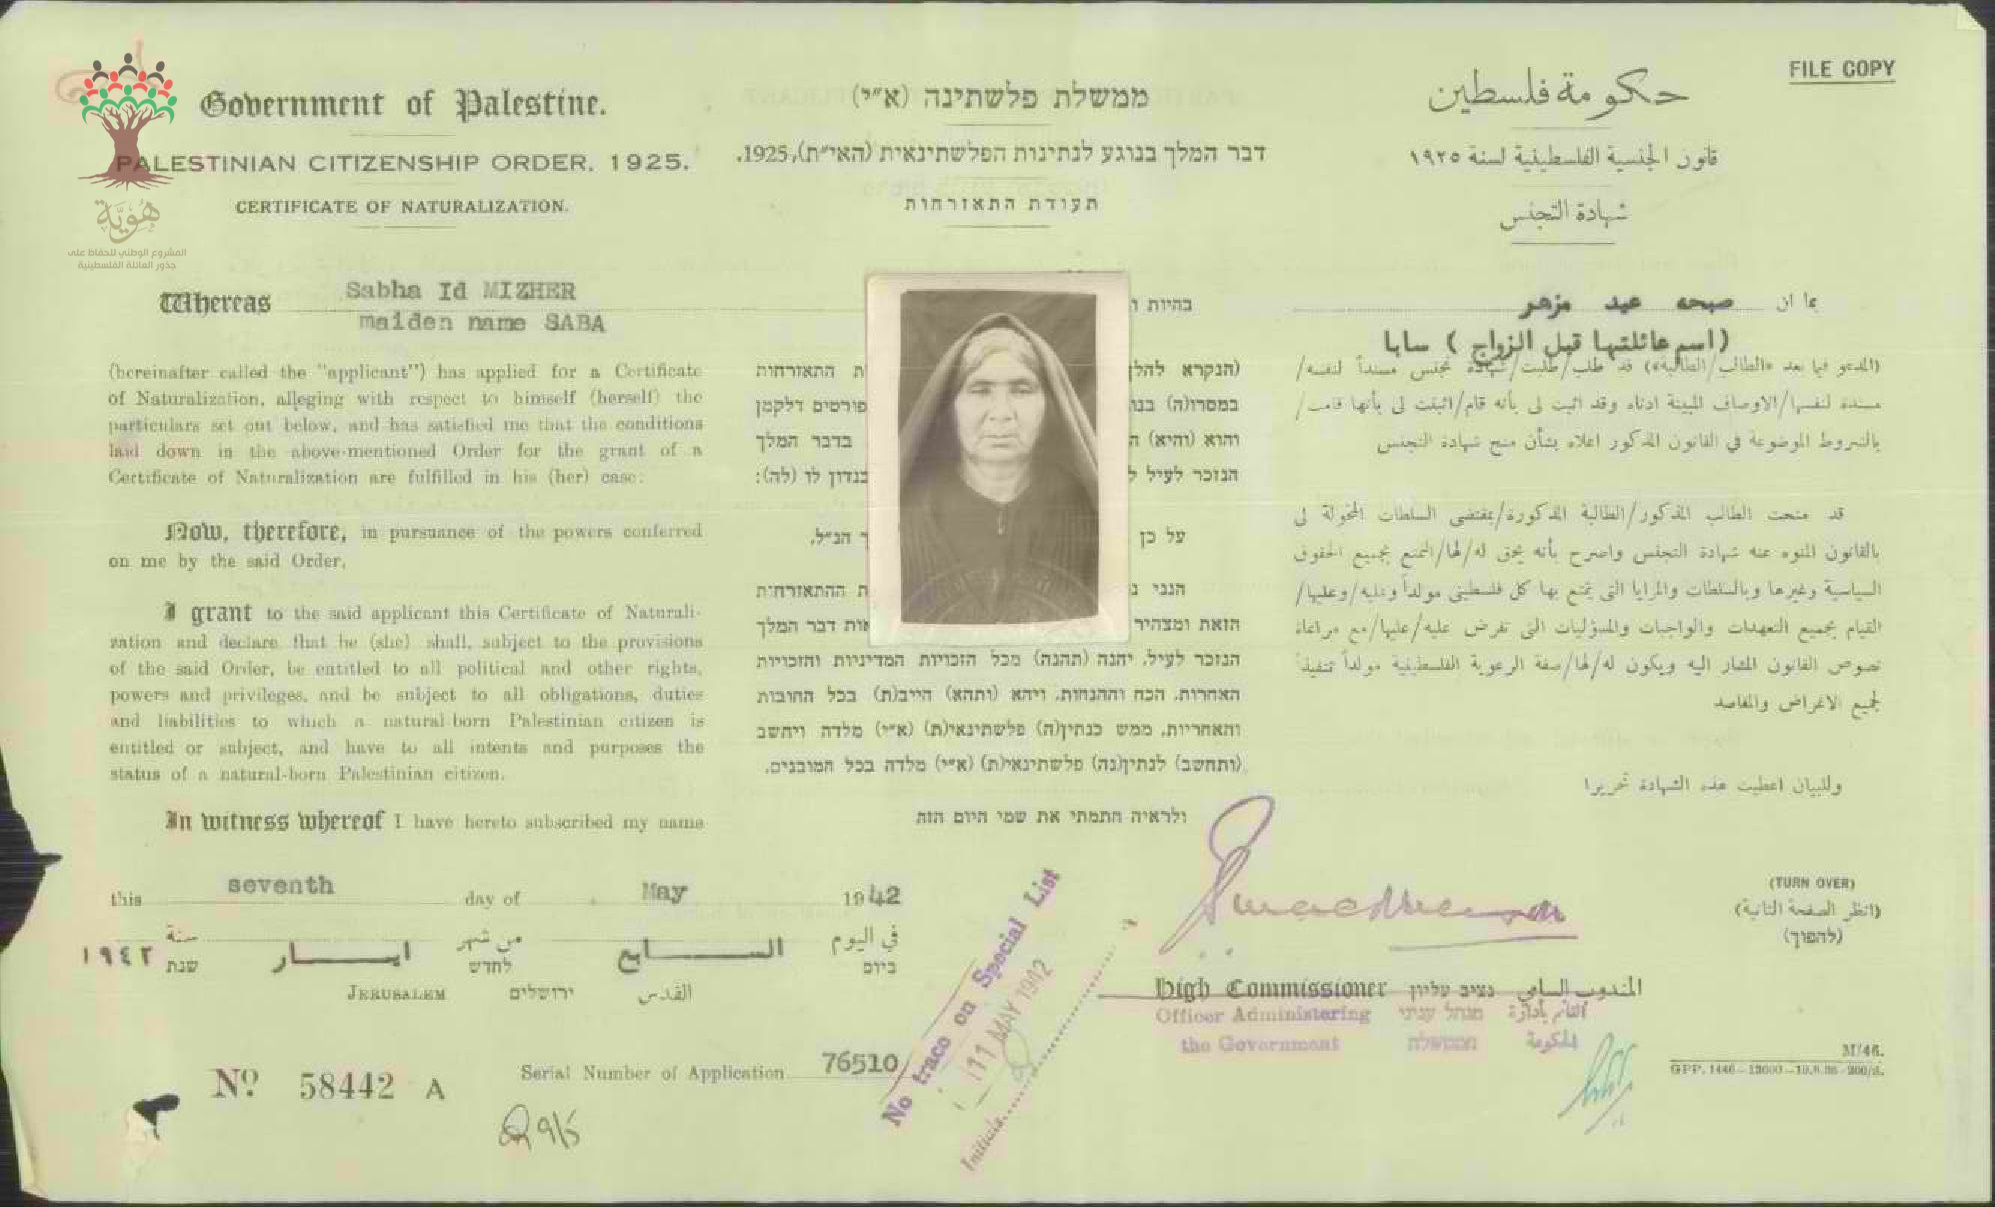 FILE COPY
Government of Palestine.
PALESTINIAN CITIZENSHIP ORDER, 1925.
CERTIFICATE OF NATURALIZATION.
هُوِيَّة
المشروع الوطني للحفاظ على
جذور العائلة الفلسطينية
Whereas Sabha Id MIZHER
maiden name SABA
(hereinafter called the "applicant") has applied for a Certificate
of Naturalization, alleging with respect to himself (herself) the
particulars set out below, and has satisfied me that the conditions
laid down in the above-mentioned Order for the grant of a
Certificate of Naturalization are fulfilled in his (her) case:
Now, therefore, in pursuance of the powers conferred
on me by the said Order,
I grant to the said applicant this Certificate of Naturali-
zation and declare that he (she) shall, subject to the provisions
of the said Order, be entitled to all political and other rights,
powers and privileges, and be subject to all obligations, duties
and liabilities to which a natural-born Palestinian citizen is
entitled or subject, and have to all intents and purposes the
status of a natural-born Palestinian citizen.
In witness whereof I have hereto subscribed my name
this seventh day of May 1942
ממשלת פלשתינה (א״י)
דבר המלך בנוגע לנתינות הפלשתינאית (הא״ית), 1925.
תעודת התאזרחות
בהיות ו
(הנקרא להלן ת התאזרחות
במסרו(ה) בנו פורטים דלקמן
והוא (והיא) ה בדבר המלך
הנזכר לעיל ל בנדון לו (לה):
על כן ר הנ״ל,
הנני נ ת ההתאזרחות
הזאת ומצהיר אות דבר המלך
הנזכר לעיל, יהנה (תהנה) מכל הזכויות המדיניות והזכויות
האחרות, הכח וההנחות, ויהא (ותהא) חייב(ת) בכל החובות
והאחריות, ממש כנתין(ה) פלשתינאי(ת) (א״י) מלדה ויחשב
(ותחשב) לנתין(נה) פלשתינאי(ת) (א״י) מלדה בכל המובנים.
ולראיה חתמתי את שמי היום הזה
حكومة فلسطين
قانون الجنسية الفلسطينية لسنة ١٩٢٥
شهادة التجنس
بما ان صبحه عيد مزهر
(اسم عائلتها قبل الزواج) سابا
(المدعو فيما بعد «الطالب/الطالبة») قد طلب/طلبت/شهادة تجنس مسنداً لنفسه/
مسندة لنفسها/الاوصاف المبينة ادناه وقد اثبت لي بأنه قام/اثبتت لي بأنها قامت/
بالشروط الموضوعة في القانون المذكور اعلاه بشأن منح شهادة التجنس
قد منحت الطالب المذكور/الطالبة المذكورة/بمقتضى السلطات المخولة لي
بالقانون المنوه عنه شهادة التجنس واصرح بأنه يحق له/لها/التمتع بجميع الحقوق
السياسية وغيرها وبالسلطات والمزايا التي يتمتع بها كل فلسطيني مولداً وعليه/وعليها/
القيام بجميع التعهدات والواجبات والمسؤليات التي تفرض عليه/عليها/مع مراعاة
نصوص القانون المشار اليه ويكون له/لها/صفة الرعوية الفلسطينية مولداً تنفيذاً
لجميع الاغراض والمقاصد
وللبيان اعطيت هذه الشهادة تحريرا
في اليوم السابع من شهر ايار سنة ١٩٤٢
ביום לחדש שנת
JERUSALEM ירושלים القدس
(TURN OVER)
(انظر الصفحة الثانية)
(להפוך)
High Commissioner נציב עליון المندوب السامي
Officer Administering מנהל עניני القائم بأدارة
the Government הממשלה الحكومة
No trace on Special List
11 MAY 1942
Initials
Nº 58442 A
Serial Number of Application 76510
M/46.
GPP. 1446—12000—19.8.36—200/d.